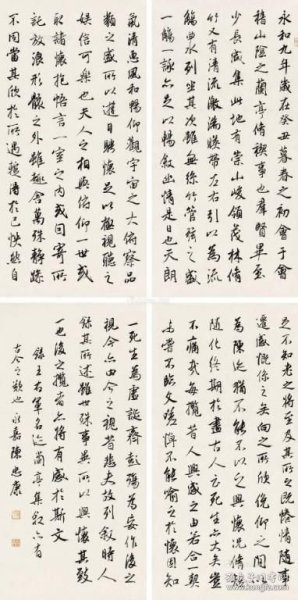 永和九年歲在癸丑暮春之初會于會
稽山陰之蘭亭脩禊事也群賢畢至
少長咸集此地有崇山峻領茂林脩
竹又有清流激湍暎帶左右引以為流
觴曲水列坐其次雖無絲竹管弦之盛
一觴一詠亦足以暢敘幽情是日也天朗
氣清惠風和暢仰觀宇宙之大俯察品
類之盛所以遊目騁懷足以極視聽之
娛信可樂也夫人之相與俯仰一世或
取諸懷抱悟言一室之內或因寄所
託放浪形骸之外雖趣舍萬殊靜躁
不同當其欣於所遇蹔得於己快然自
足不知老之將至及其所之既惓情隨事
遷感慨係之矣向之所欣俛仰之間以
為陳迹猶不能不以之興懷況脩短
隨化終期於盡古人云死生亦大矣豈
不痛哉每攬昔人興感之由若合一契
未嘗不臨文嗟悼不能喻之於懷固知
一死生為虛誕齊彭殤為妄作後之
視今亦由今之視昔悲夫故列敘時人
錄其所述雖世殊事異所以興懷其致
一也後之攬者亦將有感於斯文
錄王右軍名迹蘭亭集敘亦有
古今之歎也永嘉陳忠康